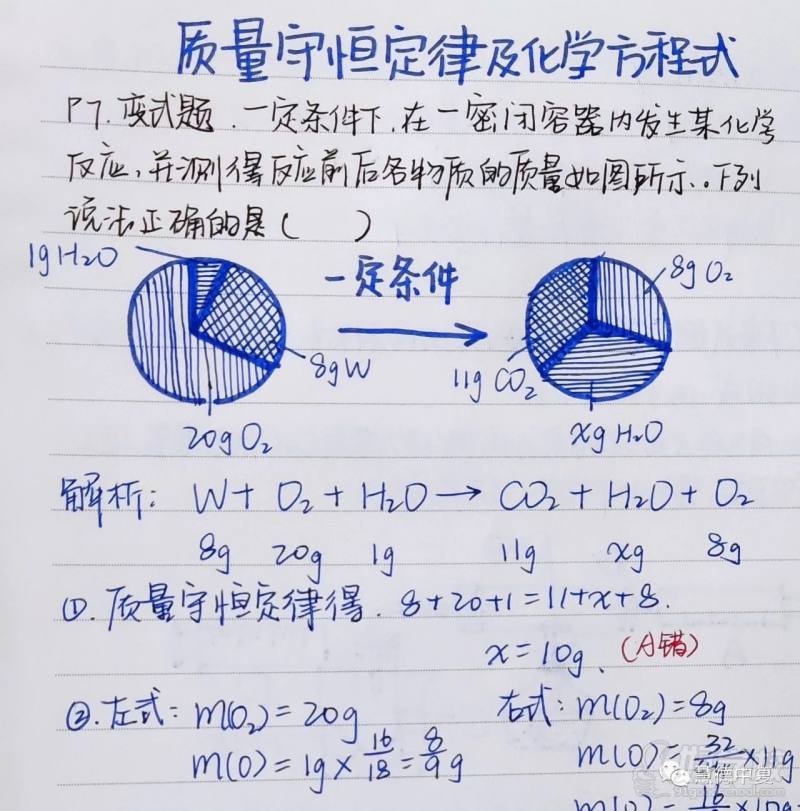 质量守恒定律及化学方程式
P7.变式题.一定条件下,在一密闭容器内发生某化学
反应,并测得反应前后各物质的质量如图所示.下列
说法正确的是(    )
1gH₂O
一定条件
8gO₂
8gW
11g CO₂
20gO₂
xg H₂O
解析: W + O₂ + H₂O → CO₂ + H₂O + O₂
8g 20g 1g 11g xg 8g
①.质量守恒定律得. 8+20+1=11+x+8.
x=10g. (A错)
②.左式: m(O₂)=20g 右式: m(O₂)=8g
m(O)=1g×16/18=8/9g m(O)=32/ ×11g
m(O)= ×10g